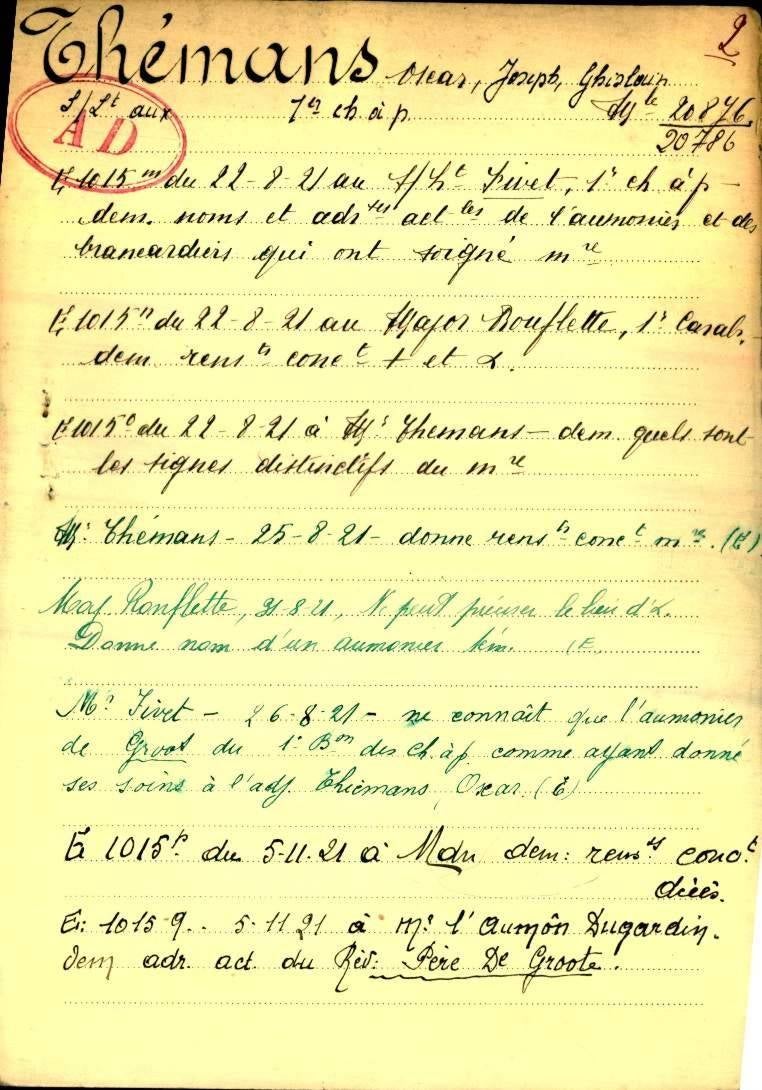 2
Thémans Oscar, Joseph, Ghislain
S/Lt aux 1er ch à p. Mle 20876.
20786
AD
E 1015 m du 22-8-21 au S/Lt Fivet, 1r ch à p -
dem. noms et adrses actles de l'aumonier et des
brancardiers qui ont soigné mre
E 1015 n du 22-8-21 au Major Rouflette, 1r Carab.
dem rensts conct + et L.
E 1015 o du 22-8-21 à Mr Themans - dem. quels sont
les signes distinctifs du mre
Mr Thémans - 25-8-21 - donne rensts conct mre. (E)
Maj Ronflette, 31-8-21, Ne peut préciser le lieu d'L.
Donne nom d'un aumonier tém. (E
Mr Fivet - 26-8-21 - ne connaît que l'aumonier
de Groot du 1r Bon des ch. à p. comme ayant donné
ses soins à l'adj. Thiemans, Oscar. (E)
E 1015 p du 5-11-21 à Mdn dem: rensts conct
décès.
E: 1015 q.. 5-11 21 à Mr l'Aumôn Dugardin.
dem adr. act. du Rév: Père De Groote.